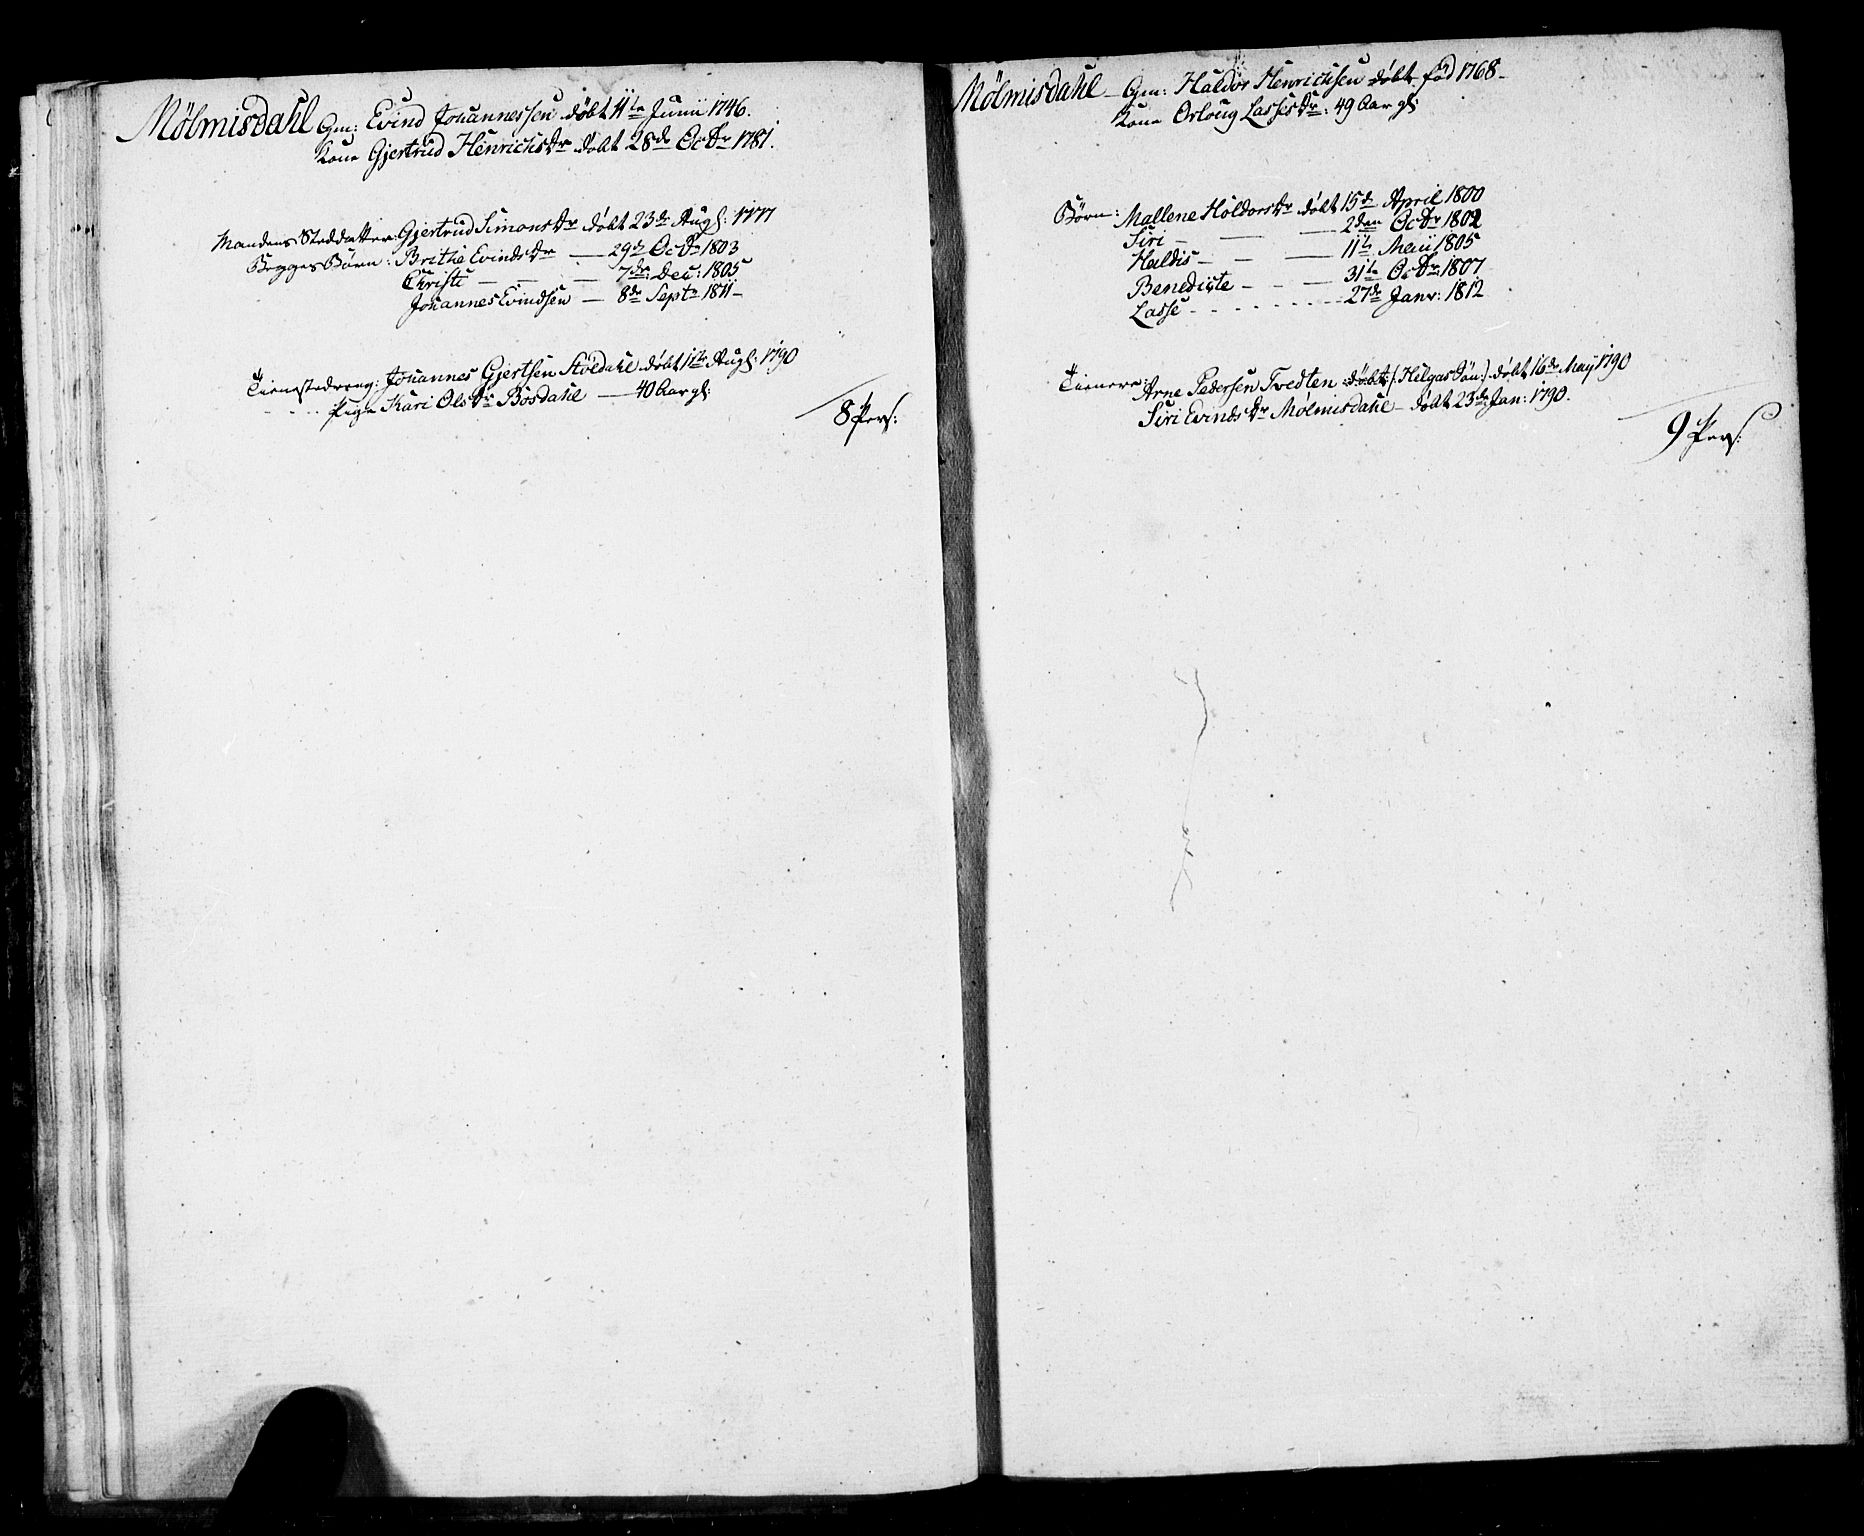 Mølmisdahl Gm: Evind Johannessen døbt 11te Junii 1746.
Kone Gjertrud Henrichsdr døbt 28de Octbr 1781.
Mandens Steddatter: Gjertrud Simonsdr døbt 23de Augs: 1777
Begges Børn: Brithe Evindsdr — 29de Octbr 1803
Christi — — — 7de Dec: 1805
Johannes Evindsen — 8de Septr 1811 —
Tienestedreng: Johannes Gjertsen Støldahl døbt 1ste Augs: 1790
- - - - Pige Kari Olsdr Bosdahl — 40 Aar gl:
8 Pers:
Mølmisdahl — Gm: Haldor Henrichsen døbt fød 1768 —
Kone Orloug Lassesdr: 49 Aar gl:
Børn: Mallene Holdorsdr døbt 15de April 1800
Siri — — — 2den Octbr 1802
Haldis — — — 11te Maii 1805
Benedicte — — — 31te Octbr 1807
Lasse - - - - - - - 27de Janr: 1812
Tienere: Arne Pedersen Tvedten døbt (: Helgas Søn :) døbt 16de May 1790
Siri Evindsdr Mølmisdahl — døbt 23de Jan: 1790.
9 Pers: